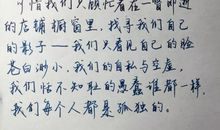 惜我们只顾忙着在一瞥即逝
的店铺橱窗里，找寻我们自己
的影子——我们只看见自己的脸
苍白渺小，我们的自私与空虚
我们恬不知耻的愚蠢谁都一样，
我们每个人都是孤独的。